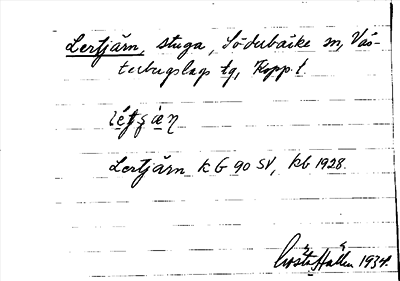 Lertjärn, stuga, Söderbärke sn, Väs-
terbergslags tg, Kopp. l.
Lertjärn k G 90 SV, kb 1928.
Gösta Hallén 1934.